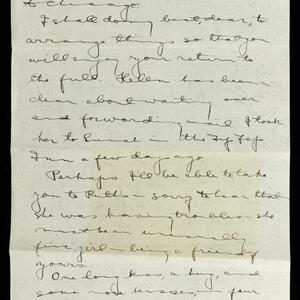 to Chicago.
I shall do my best, dear, to
arrange things so that you
will enjoy your return to
the full. Helen has been
dear about waiting over
and forwarding mail. I took
her to lunch in the Tip Top
Inn a few days ago.
Perhaps I'll be able to take
you to Ruth's - sorry to hear that
she was having troubles - she
must be an unusually
fine girl - being a friend of
yours.
One long kiss, a hug, and
some more kisses, - four